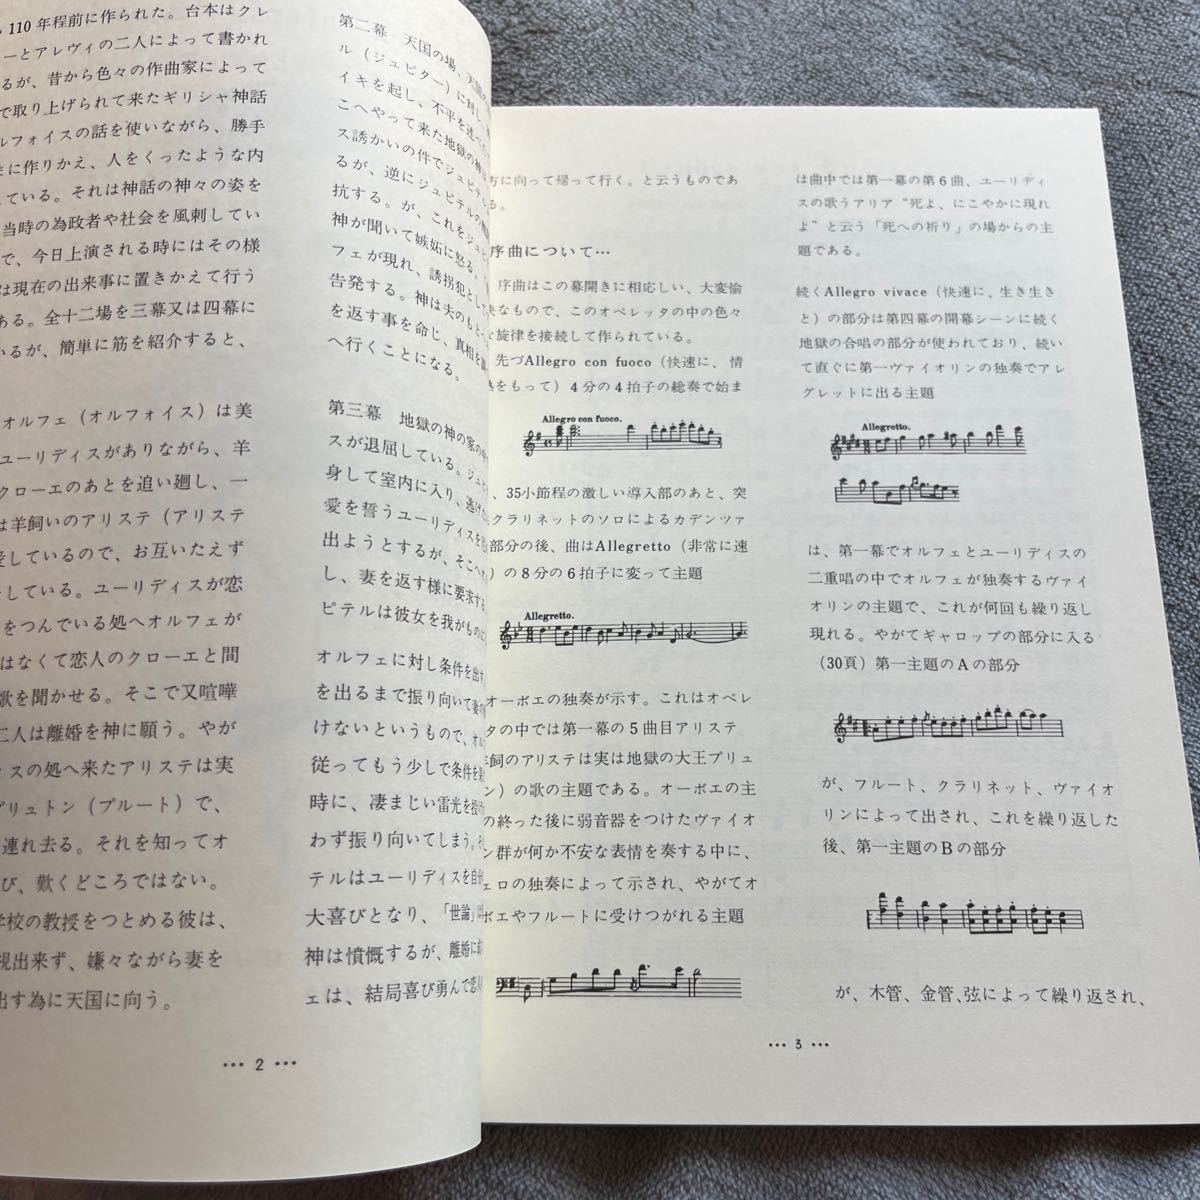 110年程前に作られた。台本はクレ
ーとアレヴィの二人によって書かれ
るが、昔から色々の作曲家によって
で取り上げられて来たギリシャ神話
ルフォイスの話を使いながら、勝手
に作りかえ、人をくったような内
ている。それは神話の神々の姿を
当時の為政者や社会を風刺してい
で、今日上演される時にはその様
は現在の出来事に置きかえて行う
ある。全十二場を三幕又は四幕に
いるが、簡単に筋を紹介すると、
オルフェ（オルフォイス）は美
ユーリディスがありながら、羊
クローエのあとを追い廻し、一
は羊飼いのアリステ（アリステ
愛しているので、お互いたえず
している。ユーリディスが恋
をつんでいる処へオルフェが
はなくて恋人のクローエと間
歌を聞かせる。そこで又喧嘩
二人は離婚を神に願う。やが
ィスの処へ来たアリステは実
プリュトン（プルート）で、
連れ去る。それを知ってオ
び、歎くどころではない。
学校の教授をつとめる彼は、
視出来ず、嫌々ながら妻を
出す為に天国に向う。
第二幕 天国の場、天国の
ル（ジュピター）に対し、
イキを起し、不平を述べ
こへやって来た地獄の神
ス誘かいの件でジュピテル
るが、逆にジュピテルの
抗する。が、これをジュピ
神が聞いて嫉妬に怒る。
フェが現れ、誘拐犯として
告発する。神は夫のもとへ
を返す事を命じ、真相を
へ行くことになる。
第三幕 地獄の神の家の中
スが退屈している。ジュピ
身して室内に入り、逃げ
愛を誓うユーリディスを
出ようとするが、そこへオ
し、妻を返す様に要求する
ピテルは彼女を我がものに
オルフェに対し条件を出す
を出るまで振り向いて妻の
けないというもので、オル
従ってもう少しで条件を
時に、凄まじい雷光を投げ
わず振り向いてしまう。
テルはユーリディスを自分
大喜びとなり、「世論」は
神は憤慨するが、離婚に
ェは、結局喜び勇んで恋
… 2 …
方に向って帰って行く。と云うものであ
る。
序曲について…
序曲はこの幕開きに相応しい、大変愉
快なもので、このオペレッタの中の色々
な旋律を接続して作られている。
先づAllegro con fuoco（快速に、情
熱をもって）4分の4拍子の総奏で始ま
Allegro con fuoco.
、35小節程の激しい導入部のあと、突
クラリネットのソロによるカデンツァ
部分の後、曲はAllegretto（非常に速
）の8分の6拍子に変って主題
Allegretto.
オーボエの独奏が示す。これはオペレ
タの中では第一幕の5曲目アリステ
羊飼のアリステは実は地獄の大王プリュ
ン）の歌の主題である。オーボエの主
の終った後に弱音器をつけたヴァイオ
ン群が何か不安な表情を奏する中に、
ェロの独奏によって示され、やがてオ
ボエやフルートに受けつがれる主題
は曲中では第一幕の第6曲、ユーリディ
スの歌うアリア“死よ、にこやかに現れ
よ”と云う「死への祈り」の場からの主
題である。
続くAllegro vivace（快速に、生き生き
と）の部分は第四幕の開幕シーンに続く
地獄の合唱の部分が使われており、続い
て直ぐに第一ヴァイオリンの独奏でアレ
グレットに出る主題
Allegretto.
は、第一幕でオルフェとユーリディスの
二重唱の中でオルフェが独奏するヴァイ
オリンの主題で、これが何回も繰り返し
現れる。やがてギャロップの部分に入る
（30頁）第一主題のAの部分
が、フルート、クラリネット、ヴァイオ
リンによって出され、これを繰り返した
後、第一主題のBの部分
が、木管、金管、弦によって繰り返され、
… 3 …